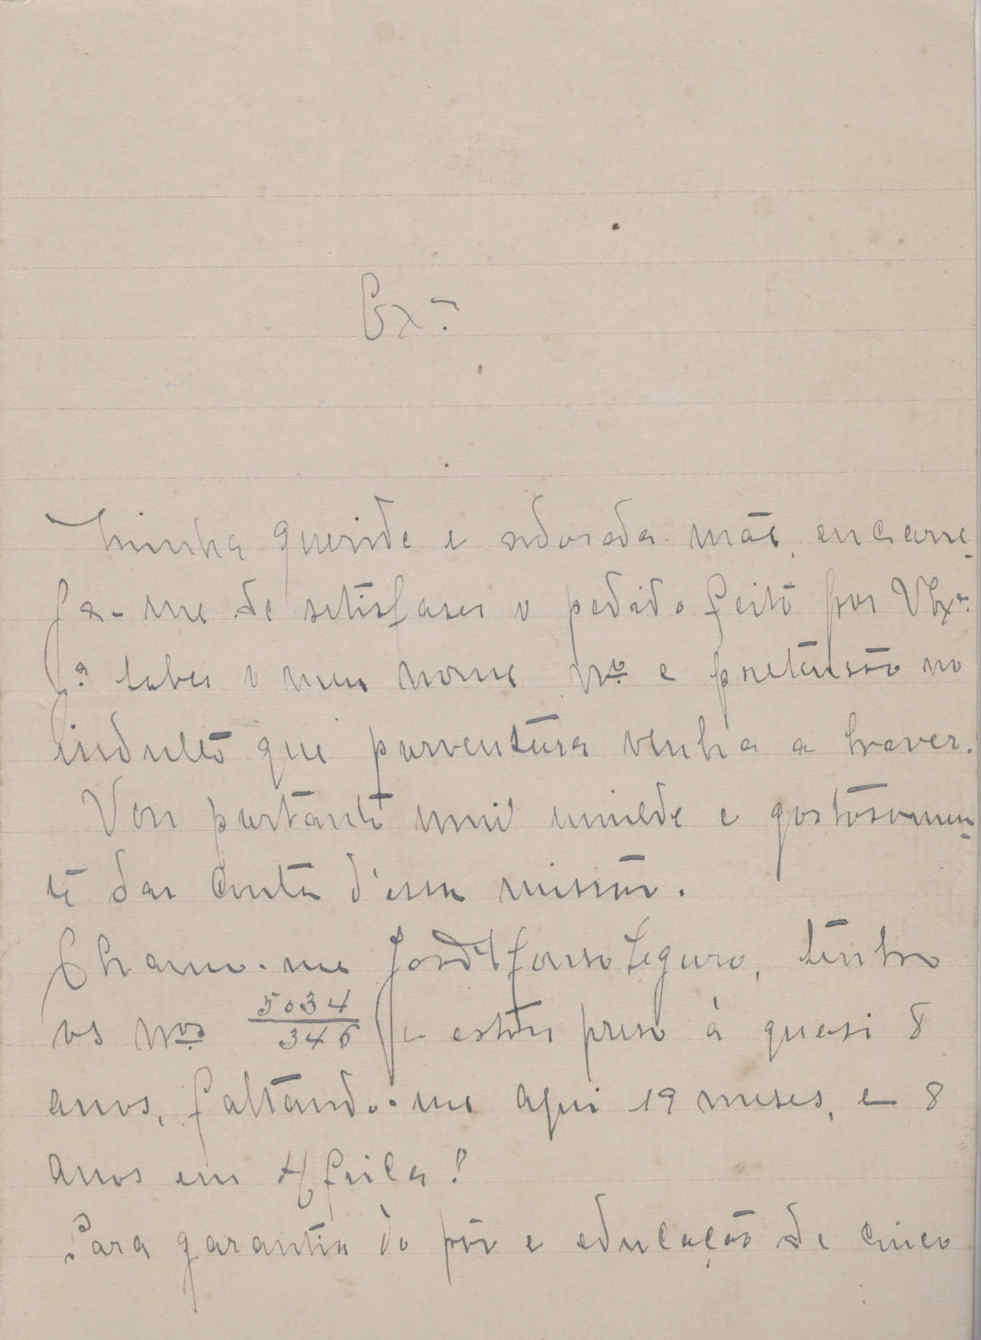 Exª
Minha querida e adorada mãe, encarre-
ga-me de satisfaser o pedido feito por VExª
Jª saber o meu nome Nº e pretensão no
indulto que porventura venha a haver.
Vou portanto mui umilde e gostosomen-
te dar conta d'essa missão.
Chamo-me José Afonso Seguro, tenho
os Nos 5034
346 e estou preso à quasi 8
anos, faltando-me aqui 19 meses, e 8
anos em Africa!
Para garantia do pão e educação de cinco